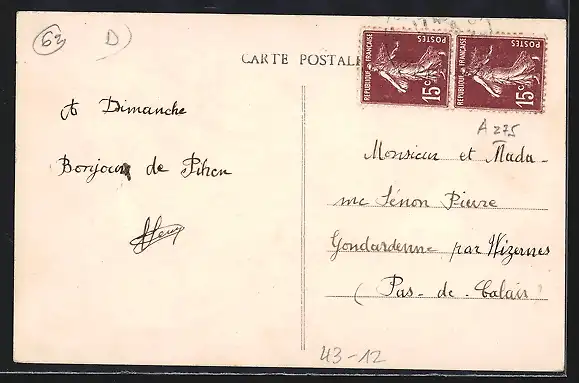 62 D)
CARTE POSTALE
REPUBLIQUE FRANÇAISE POSTES 15c
REPUBLIQUE FRANÇAISE POSTES 15c
A 275
A Dimanche
Bonjour de Pihen
Monsieur et Mada-
me Sénon Pierre
Gondardenne par Wizernes
(Pas-de-Calais)
43-12